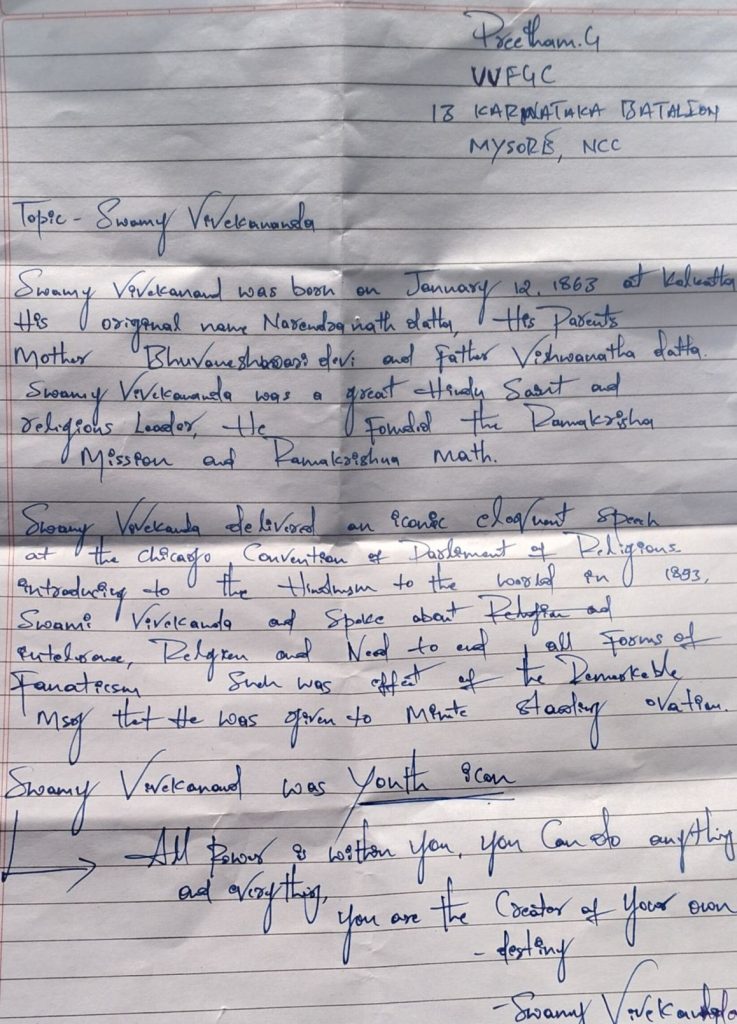 Preetham.G
VVFGC
13 KARNATAKA BATALION
MYSORE, NCC
Topic - Swamy Vivekananda
Swamy Vivekanand was born on January 12, 1863 at Kolkatta
His original name Narendra nath datta, His Parents
Mother Bhuvaneshwari devi and Father Vishwanatha datta.
Swamy Vivekananda was a great Hindu Saint and
religious Leader, He Founded the Ramakrisha
Mission and Ramakrishna Math.
Swamy Vivekanda delivered an iconic eloquent speech
at the chicago Convention of Parliment of Religious
introducing to the Hinduism to the world in 1893,
Swami Vivekanda and Spoke about Religion and
intolerance, Religion and Need to end all Forms of
Fanaticsm Such was effect of the Remarkable
Msg that He was given to Minute standing ovation.
Swamy Vivekanand was Youth icon
All Power is within you, you Can do anything
and everything,
you are the Creator of your own
- destiny
- Swamy Vivekananda